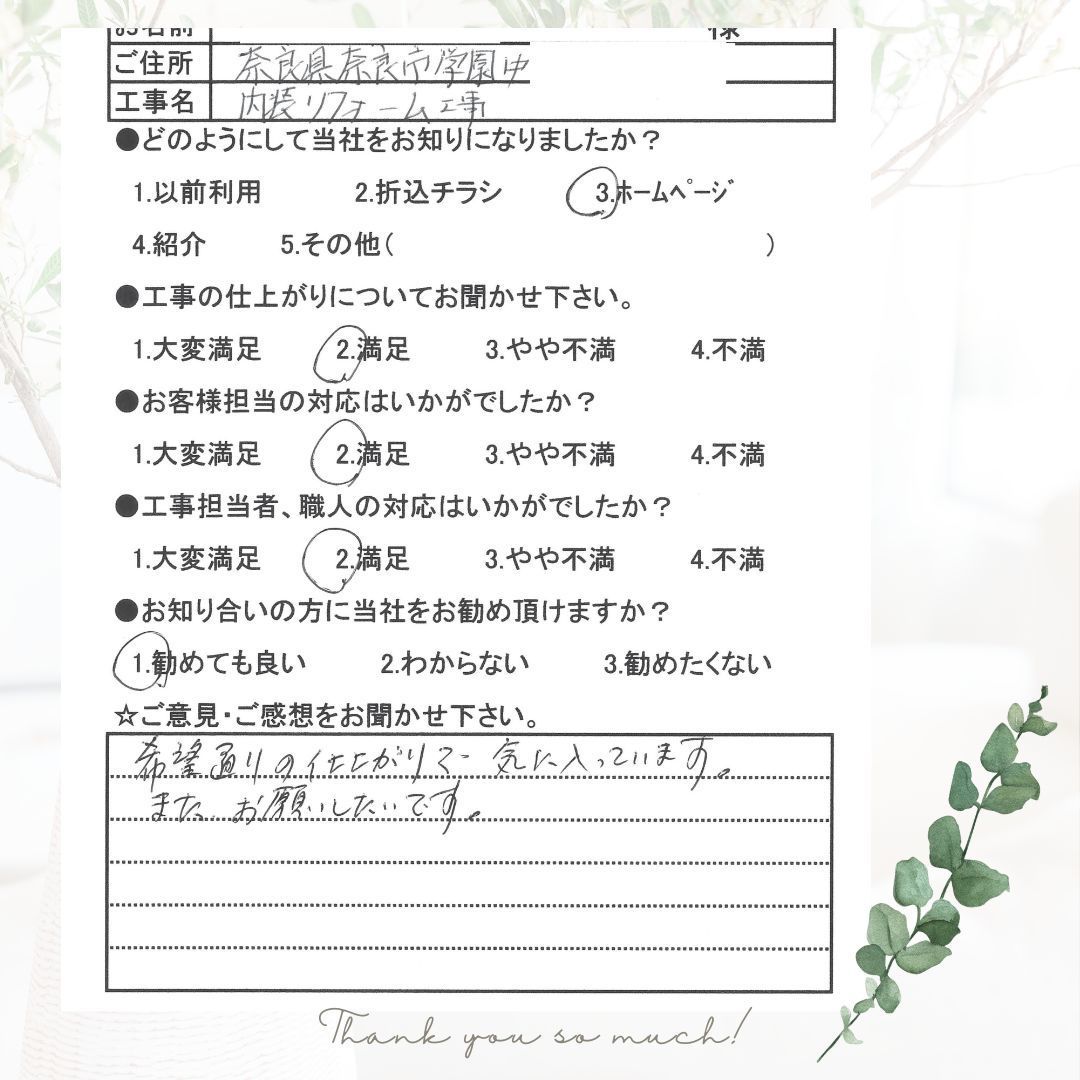 お名前 様
ご住所 奈良県奈良市学園中
工事名 内装リフォーム工事
●どのようにして当社をお知りになりましたか？
1.以前利用 2.折込チラシ 3.ﾎｰﾑﾍﾟｰｼﾞ
4.紹介 5.その他( )
●工事の仕上がりについてお聞かせ下さい。
1.大変満足 2.満足 3.やや不満 4.不満
●お客様担当の対応はいかがでしたか？
1.大変満足 2.満足 3.やや不満 4.不満
●工事担当者、職人の対応はいかがでしたか？
1.大変満足 2.満足 3.やや不満 4.不満
●お知り合いの方に当社をお勧め頂けますか？
1.勧めても良い 2.わからない 3.勧めたくない
☆ご意見・ご感想をお聞かせ下さい。
希望通りの仕上がりで気に入っています。
また、お願いしたいです。
Thank you so much!